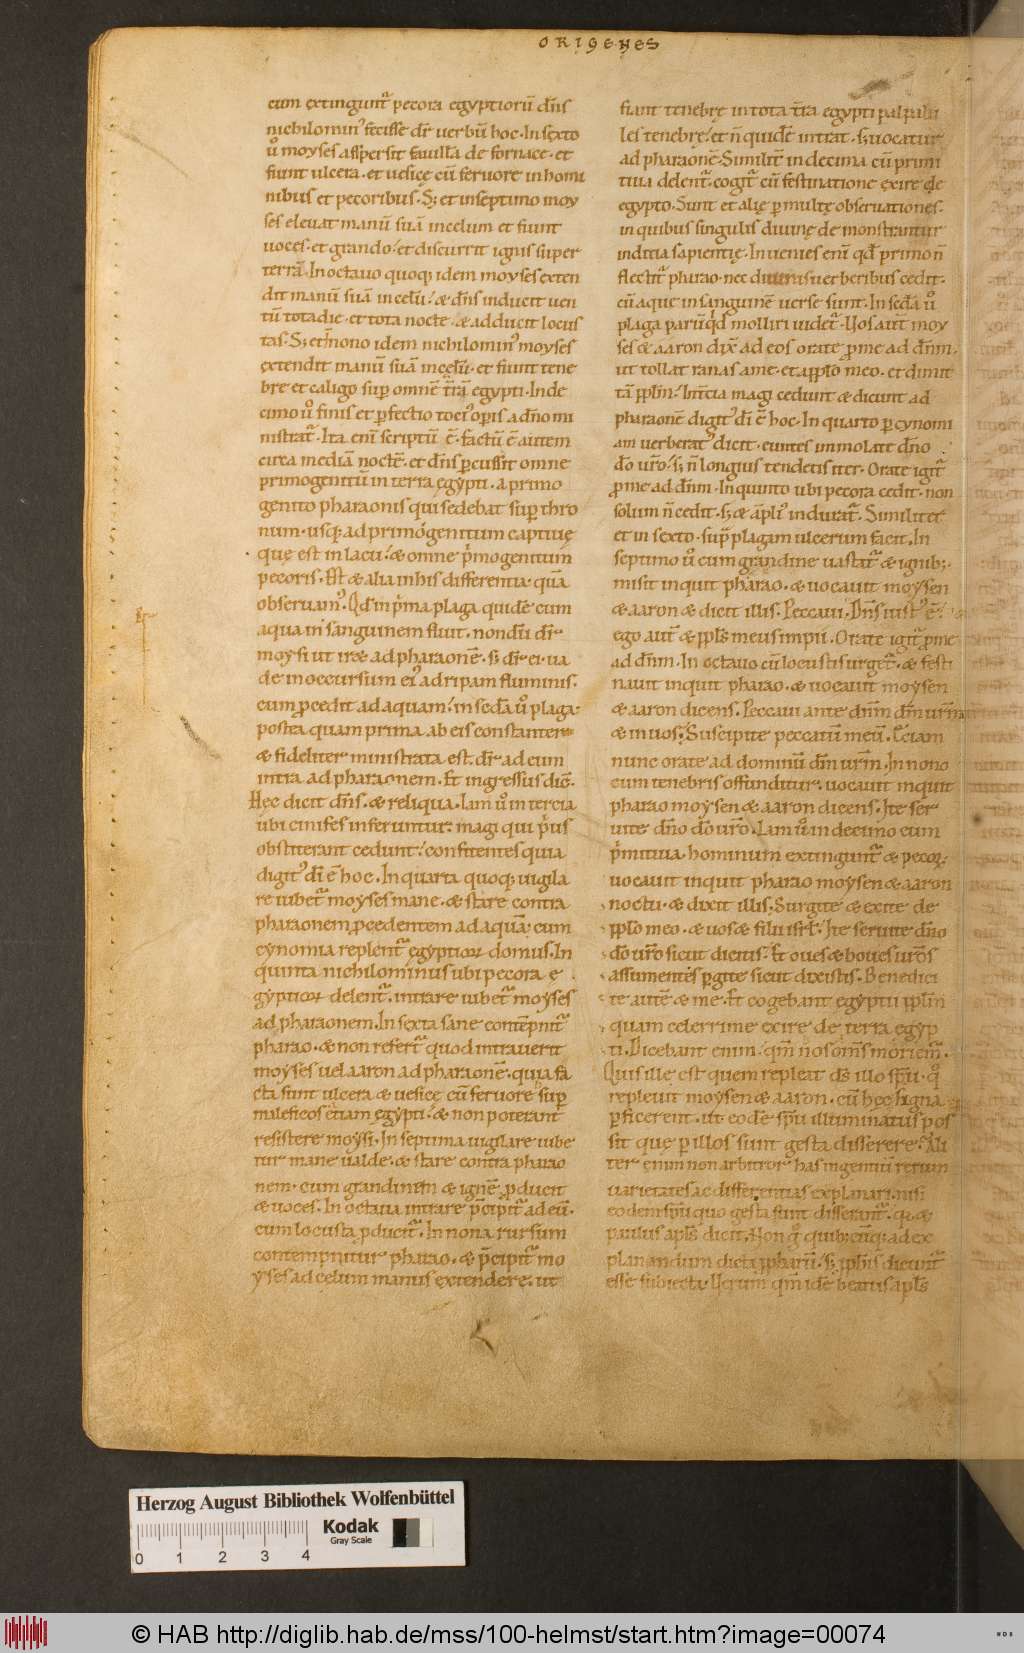 ORIGENES
cum extingunt᷑ pecora egyptiorū dn̄s
nichilomin᾽ fecisse dr̄ uerbū hoc. In sexto
ů moyses asspersit fauilla de fornace. et
fiunt ulcera. et uesicę cū feruore in homi
nibus et pecoribus. S; et in septimo moy
ses eleuat manū suā in celum et fiunt
uoces. et grando. et discurrit ignis super
terrā. In octauo quoq; idem moyses exten
dit manū suā in celū. & dn̄s inducit uen
tū tota die. et tota nocte. & adducit locus
tas. S; et in nono idem nichilomin᾽ moyses
extendit manū suā in cęlū. et fiunt tene
bre et caligo sup̄ omnē t̄rā egypti. In de
cimo ů finis et p̄fectio toci᾽ op̄is a dn̄o mi
nistrat᷑. Ita eni scriptū ē. factū ē autem
circa mediā noctē. et dn̄s p̄cussit omne
primogenitū in terra egypti. a primo
genito pharaonis qui sedebat sup̄ thro
num. usq; ad primogenitum captiuę
quę est in lacu. & omne p̓mogenitum
pecoris. Est & alia in his differentia. quā
obseruam᾽. Qd̄ in p̓ma plaga quidē cum
aqua in sanguinem fluit. nondū dr̄
moysi ut iret ad pharaonē. s; dr̄ ei. ua
de in occursum ei᾽ ad ripam fluminis.
cum p̄cedit ad aquam. in sec̄da ů plaga.
postea quam prima ab eis constanter
& fideliter ministrata est. dr̄ ad eum
intra ad pharaonem. Et ingressus dic̄.
Hęc dicit dn̄s. & reliqua. Iam ů in tercia
ubi cinifes inferuntur. magi qui p̓us
obstiterant cedunt. confitentes quia
digit᾽ dī ē hoc. In quarta quoq; uigila
re iubet᷑ moyses mane. & stare contra
pharaonem p̄cedentem ad aquā. cum
cynomia replent᷑ egyptioꝝ domus. In
quinta nichilominus ubi pecora ę
gyptioꝝ delent᷑. intrare iubet᷑ moyses
ad pharaonem. In sexta sane contēpnit᷑
pharao. & non refert᷑ quod intrauerit
moyses uel aaron ad pharaonē. quia fa
cta sunt ulcera & uesice cū feruore sup̄
maleficos etiam egypti. & non poterant
resistere moysi. In septima uigilare iube
tur mane ualde. & stare contra pharao
nem. cum grandinem & ignē p̄ducit
& uoces. In octaua intrare p̄cipit᷑ ad eū.
cum locusta p̄ducit᷑. In nona rursum
contempnitur pharao. & p̄cipit᷑ mo
yses ad celum manus extendere. ut
fiant tenebrę in tota t̄ra egypti palpabi
les tenebrę. et n̄ quidē intrat. s; uocatur
ad pharaonē. Similit᷑ in decima cū primi
tiua delent᷑. cogit᷑ cū festinatione exire de
egypto. Sunt et alię p̄multę obseruationes.
in quibus singulis diuinę demonstrantur
inditia sapientię. Inuenies enī qd̄ primo n̄
flectit᷑ pharao. nec diuinis uerberibus cedit.
cū aque in sanguinē uerse sunt. In sec̄da ů
plaga parūq̓d molliri uidet᷑. Uocauit moy
ses & aaron dix̄ ad eos orate p̄ me ad dn̄m.
ut tollat ranas a me. et a pp̄lo meo. et dimit
tā pp̄lm. In t̄cia magi cedunt & dicunt ad
pharaonē digit᾽ dī ē hoc. In quarto p̄ cynomi
am uerberat᾽ dicit. euntes immolate dn̄o
dō ur̄o. s; n̄ longius tendetis iter. Orate igit᷑
p̄ me ad dn̄m. In quinto ubi pecora cedit. non
solum n̄ cedit. s; & ampli᾽ indurat᷑. Similiter
et in sexto. sup̄ plagam ulcerum facit. In
septimo ů cum grandine uastat᷑ & ignib;.
misit inquit pharao. & uocauit moysen
& aaron & dicit illis. Peccaui. Dn̄s iust᾽ ē.
ego aut̄ & pp̄ls meus impii. Orate igit᷑ p̄ me
ad dn̄m. In octauo cū locustis urget᷑. & festi
nauit inquit pharao. & uocauit moysen
& aaron dicens. Peccaui ante dn̄m dm̄ ur̄m
& in uos. Suscipite peccatū meū. Eciam
nunc orate ad dominū dm̄ ur̄m. In nono
cum tenebris offunditur. uocauit inquit
pharao moysen & aaron dicens. Ite ser
uite dn̄o dō ur̄o. Iam ů in decimo cum
p̓mitiua hominum extingunt᷑ & pecoꝝ.
uocauit inquit pharao moysen & aaron
noctu. & dixit illis. Surgite & exite de
pp̄lo meo. & uos & filii isrl̄. Ite seruite dn̄o
dō ur̄o sicut dicitis. Et oues & boues ur̄os
assumentes p̄gite sicut dixistis. Benedici
te autē & me. Et cogebant egyptii pp̄lm
quam celerrime exire de terra egyp
ti. Dicebant enim. qm̄ nos om̄s moriem᷑.
Quis ille est quem repleat ds̄ illo sp̄u. q̊
repleuit moysen & aaron. cū hęc signa
p̄ficerent. ut eodē sp̄u illuminatus pos
sit quę p̄ illos sunt gesta disserere. Ali
ter enim non arbitror has ingentiū rerum
uarietates ac differentias explanari. nisi
eodem sp̄u quo gesta sunt disserant᷑. q; &
paulus apl̄s dicit. Non g̊ quib;cūq; ad ex
planandum dicta p̄pharū. s; p̄phis dicunt᷑
esse subiecta. Uerum qm̄ idē beatus apl̄s
Herzog August Bibliothek Wolfenbüttel
Kodak
Gray Scale
0 1 2 3 4
© HAB http://diglib.hab.de/mss/100-helmst/start.htm?image=00074